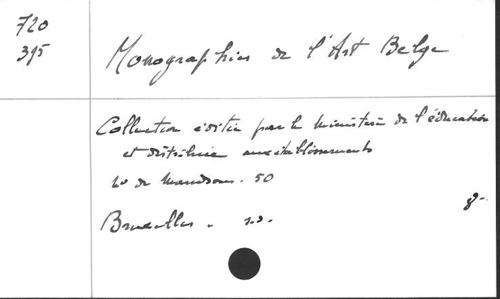 720
395
Monographies de l'Art Belge
Collection éditée par le Ministère de l'éducation
et distribuée aux établissements
50
Bruxelles. s.d.
8-